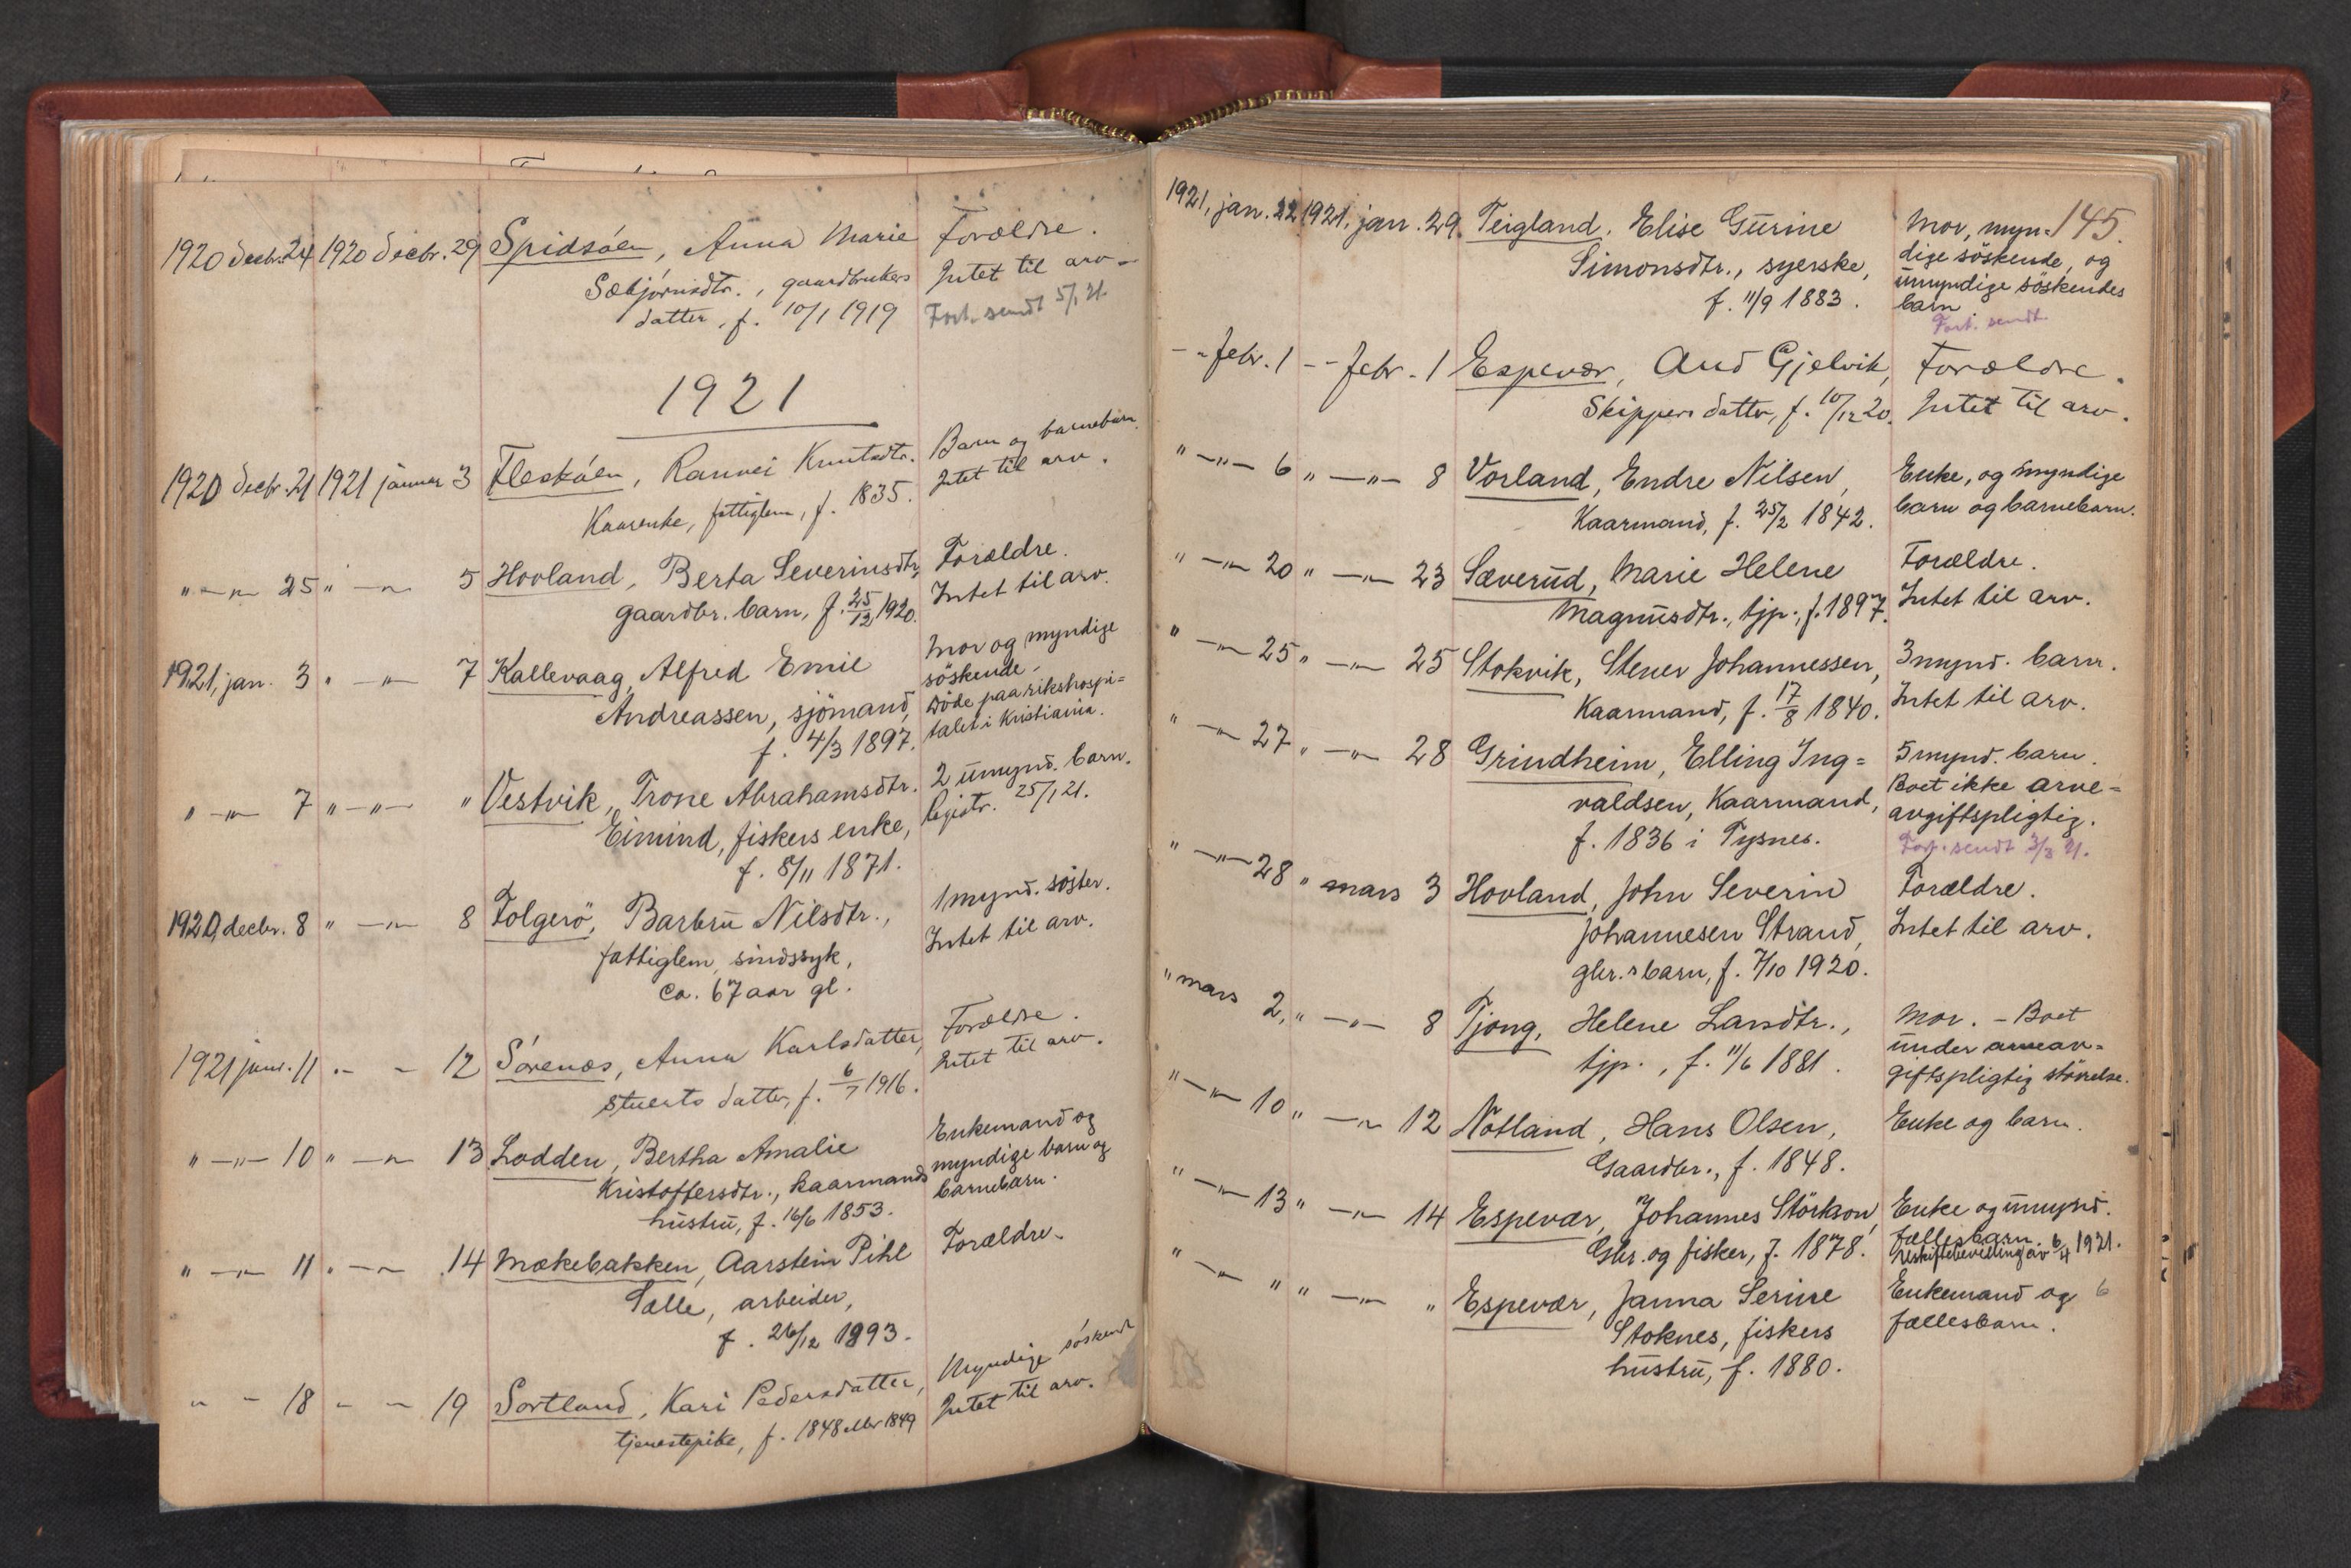 1920 decbr. 24 1920 decbr. 29 Spidsöen, Anna Marie Forældre.
Sæbjörnsdtr., gaardbrukers Intet til arv.
datter, f. 10/1 1919 Fort. sendt 5/1 21.
1921
1920 decbr. 21 1921 januar 3 Fleskåen, Rannei Knutsdtr. Barn og barnebarn.
Kaarenke, fattiglem, f. 1835. Intet til arv.
" —"— 25 " —"— 5 Hovland, Berta Severinsdtr. Forældre.
gaardbr. barn, f. 25/12 1920. Intet til arv.
1921, jan. 3 " —"— 7 Kallevaag, Alfred Emil Mor og myndige
Andreassen, sjömand, söskende.
f. 4/3 1897. Döde paa rikshospi=
talet i Kristiania.
" —"— 7 " —"— " Vestvik, Trone Abrahamsdtr. 2 umynd. barn.
Eimind, fiskers enke, Registr. 25/1 21.
f. 8/11 1871.
1920, decbr. 8 " —"— 8 Folgerö, Barbru Nilsdtr., 1 mynd. söster.
fattiglem, sindssyk, Intet til arv.
ca. 67 aar gl.
1921 janr. 11 " — 12 Sörenæs, Anna Karlsdatter, Forældre.
stuerts datter, f. 6/7 1916. Intet til arv.
" —"— 10 " —"— 13 Lodden, Bertha Amalie Enkemand og
Kristoffersdtr., kaarmands myndige barn og
hustru, f. 16/6 1853. barnebarn.
" —"— 11 " —"— 14 Mækebakken, Aarstein Pihl Forældre.
Sælle, arbeider,
f. 26/12 1893.
" — 18 " — 19 Sortland, Kari Pedersdatter, Myndige söskend
tjenestepike, f. 1848 eller 1849 Intet til arv.
1921, jan. 22 1921, jan. 29. Teigland, Elise Gurine Mor, myn= 145.
Simonsdtr., syerske, dige söskende, og
f. 11/9 1883. umyndige söskendes
barn.
Fort. sendt.
— " febr. 1 — " febr. 1 Espevær, Aud Gjelvik, Forældre.
Skippers datter, f. 10/12 20. Intet til arv.
" —"— 6 " —"— 8 Vorland, Endre Nilsen, Enke, og myndige
Kaarmand, f. 25/2 1842. barn og barnebarn.
" —"— 20 " —"— 23 Sæverud, Marie Helene Forældre.
Magnusdtr., tjp., f. 1897. Intet til arv.
" —"— 25 " —"— 25 Stokvik, Stener Johannessen, 3 mynd. barn.
Kaarmand, f. 17/8 1840. Intet til arv.
" —"— 27 " —"— 28 Grindheim, Elling Ing= 5 mynd. barn.
valdsen, Kaarmand, Boet ikke arve=
f. 1836 i Tysnes. avgiftspligtig.
Fort. sendt 3/3 21.
" —"— 28 " mars 3 Hovland, John Severin Forældre.
Johannesen Strand, Intet til arv.
gbr.s barn, f. 7/10 1920.
" mars 2, " —"— 8 Tjong, Helene Larsdtr., Mor. – Boet
tjp., f. 11/6 1881. under arveav=
giftspligtig störrelse.
" —"— 10 " —"— 12 Notland, Hans Olsen, Enke og barn.
Gaardbr., f. 1848.
" —"— 13 " —"— 14 Espevær, Johannes Störkson, Enke og umynd.
Gbr. og fisker, f. 1878. fællesbarn.
Uskiftebevilling av 6/4 1921.
" —"— " " —"— " Espevær, Janna Serine Enkemand og 6
Stoknes, fiskers fællesbarn.
hustru, f. 1880.